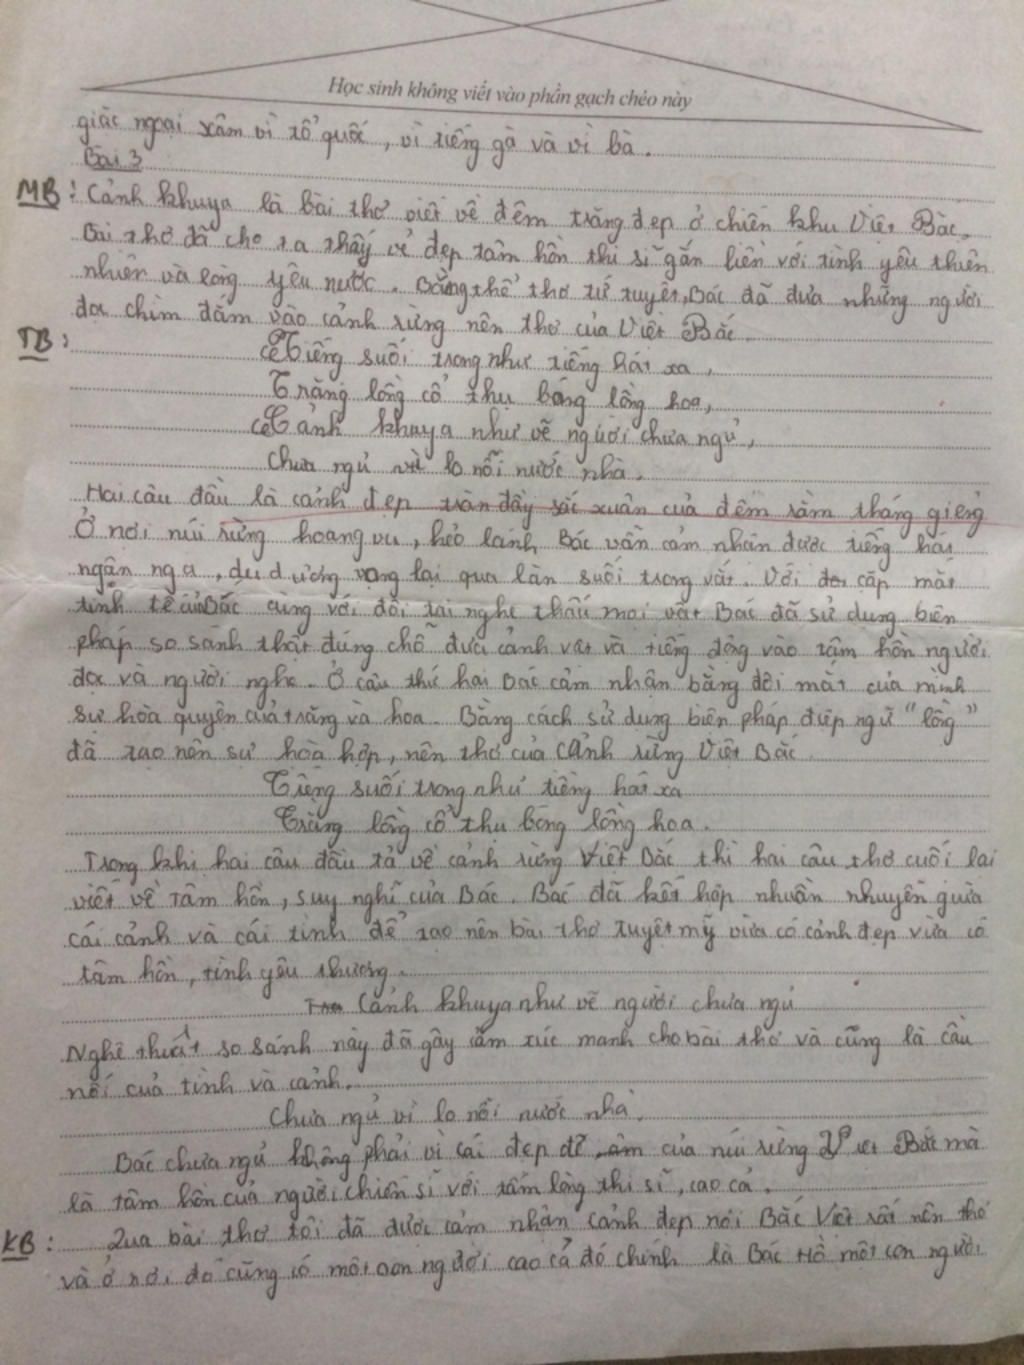 Học sinh không viết vào phần gạch chéo này
giặc ngoại xâm vì tổ quốc, vì tiếng gà và vì bà.
Bài 3
MB: Cảnh khuya là bài thơ viết về đêm trăng đẹp ở chiến khu Việt Bắc.
Bài thơ đã cho ta thấy vẻ đẹp tâm hồn thi sĩ gắn liền với tình yêu thiên
nhiên và lòng yêu nước. Bằng thể thơ tứ tuyệt, Bác đã đưa những người
đọc chìm đắm vào cảnh rừng nên thơ của Việt Bắc.
TB:
Tiếng suối trong như tiếng hát xa,
Trăng lồng cổ thụ bóng lồng hoa,
Cảnh khuya như vẽ người chưa ngủ,
Chưa ngủ vì lo nỗi nước nhà.
Hai câu đầu là cảnh đẹp tràn đầy sắc xuân của đêm rằm tháng giêng
Ở nơi núi rừng hoang vu, hẻo lánh Bác vẫn cảm nhận được tiếng hát
ngân nga, du dương vọng lại qua làn suối trong vắt. Với đôi cặp mắt
tinh tế của Bác cùng với đôi tai nghe thấu mọi vật Bác đã sử dụng biện
pháp so sánh thật đúng chỗ đưa cảnh vật và tiếng động vào tâm hồn người
đọc và người nghe. Ở câu thứ hai Bác cảm nhận bằng đôi mắt của mình
sự hòa quyện của trăng và hoa. Bằng cách sử dụng biện pháp điệp ngữ "lồng"
đã tạo nên sự hòa hợp, nên thơ của cảnh rừng Việt Bắc.
Tiếng suối trong như tiếng hát xa
Trăng lồng cổ thụ bóng lồng hoa.
Trong khi hai câu đầu tả về cảnh rừng Việt Bắc thì hai câu thơ cuối lại
viết về tâm hồn, suy nghĩ của Bác. Bác đã kết hợp nhuần nhuyễn giữa
cái cảnh và cái tình để tạo nên bài thơ tuyệt mỹ vừa có cảnh đẹp vừa có
tâm hồn, tình yêu thương.
Cảnh khuya như vẽ người chưa ngủ
Nghệ thuật so sánh này đã gây cảm xúc mạnh cho bài thơ và cũng là cầu
nối của tình và cảnh.
Chưa ngủ vì lo nỗi nước nhà.
Bác chưa ngủ không phải vì cái đẹp đẽ của núi rừng Việt Bắc mà
là tâm hồn của người chiến sĩ với tấm lòng thi sĩ, cao cả.
KB: Qua bài thơ tôi đã được cảm nhận cảnh đẹp nơi Bắc Việt rất nên thơ
và ở nơi đó cũng có một con người cao cả đó chính là Bác Hồ một con người